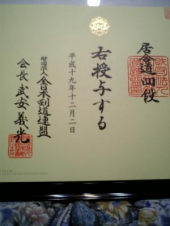 居合道四段
右授与する
平成十九年十二月二日
財団法人全日本剣道連盟
会長武安義光